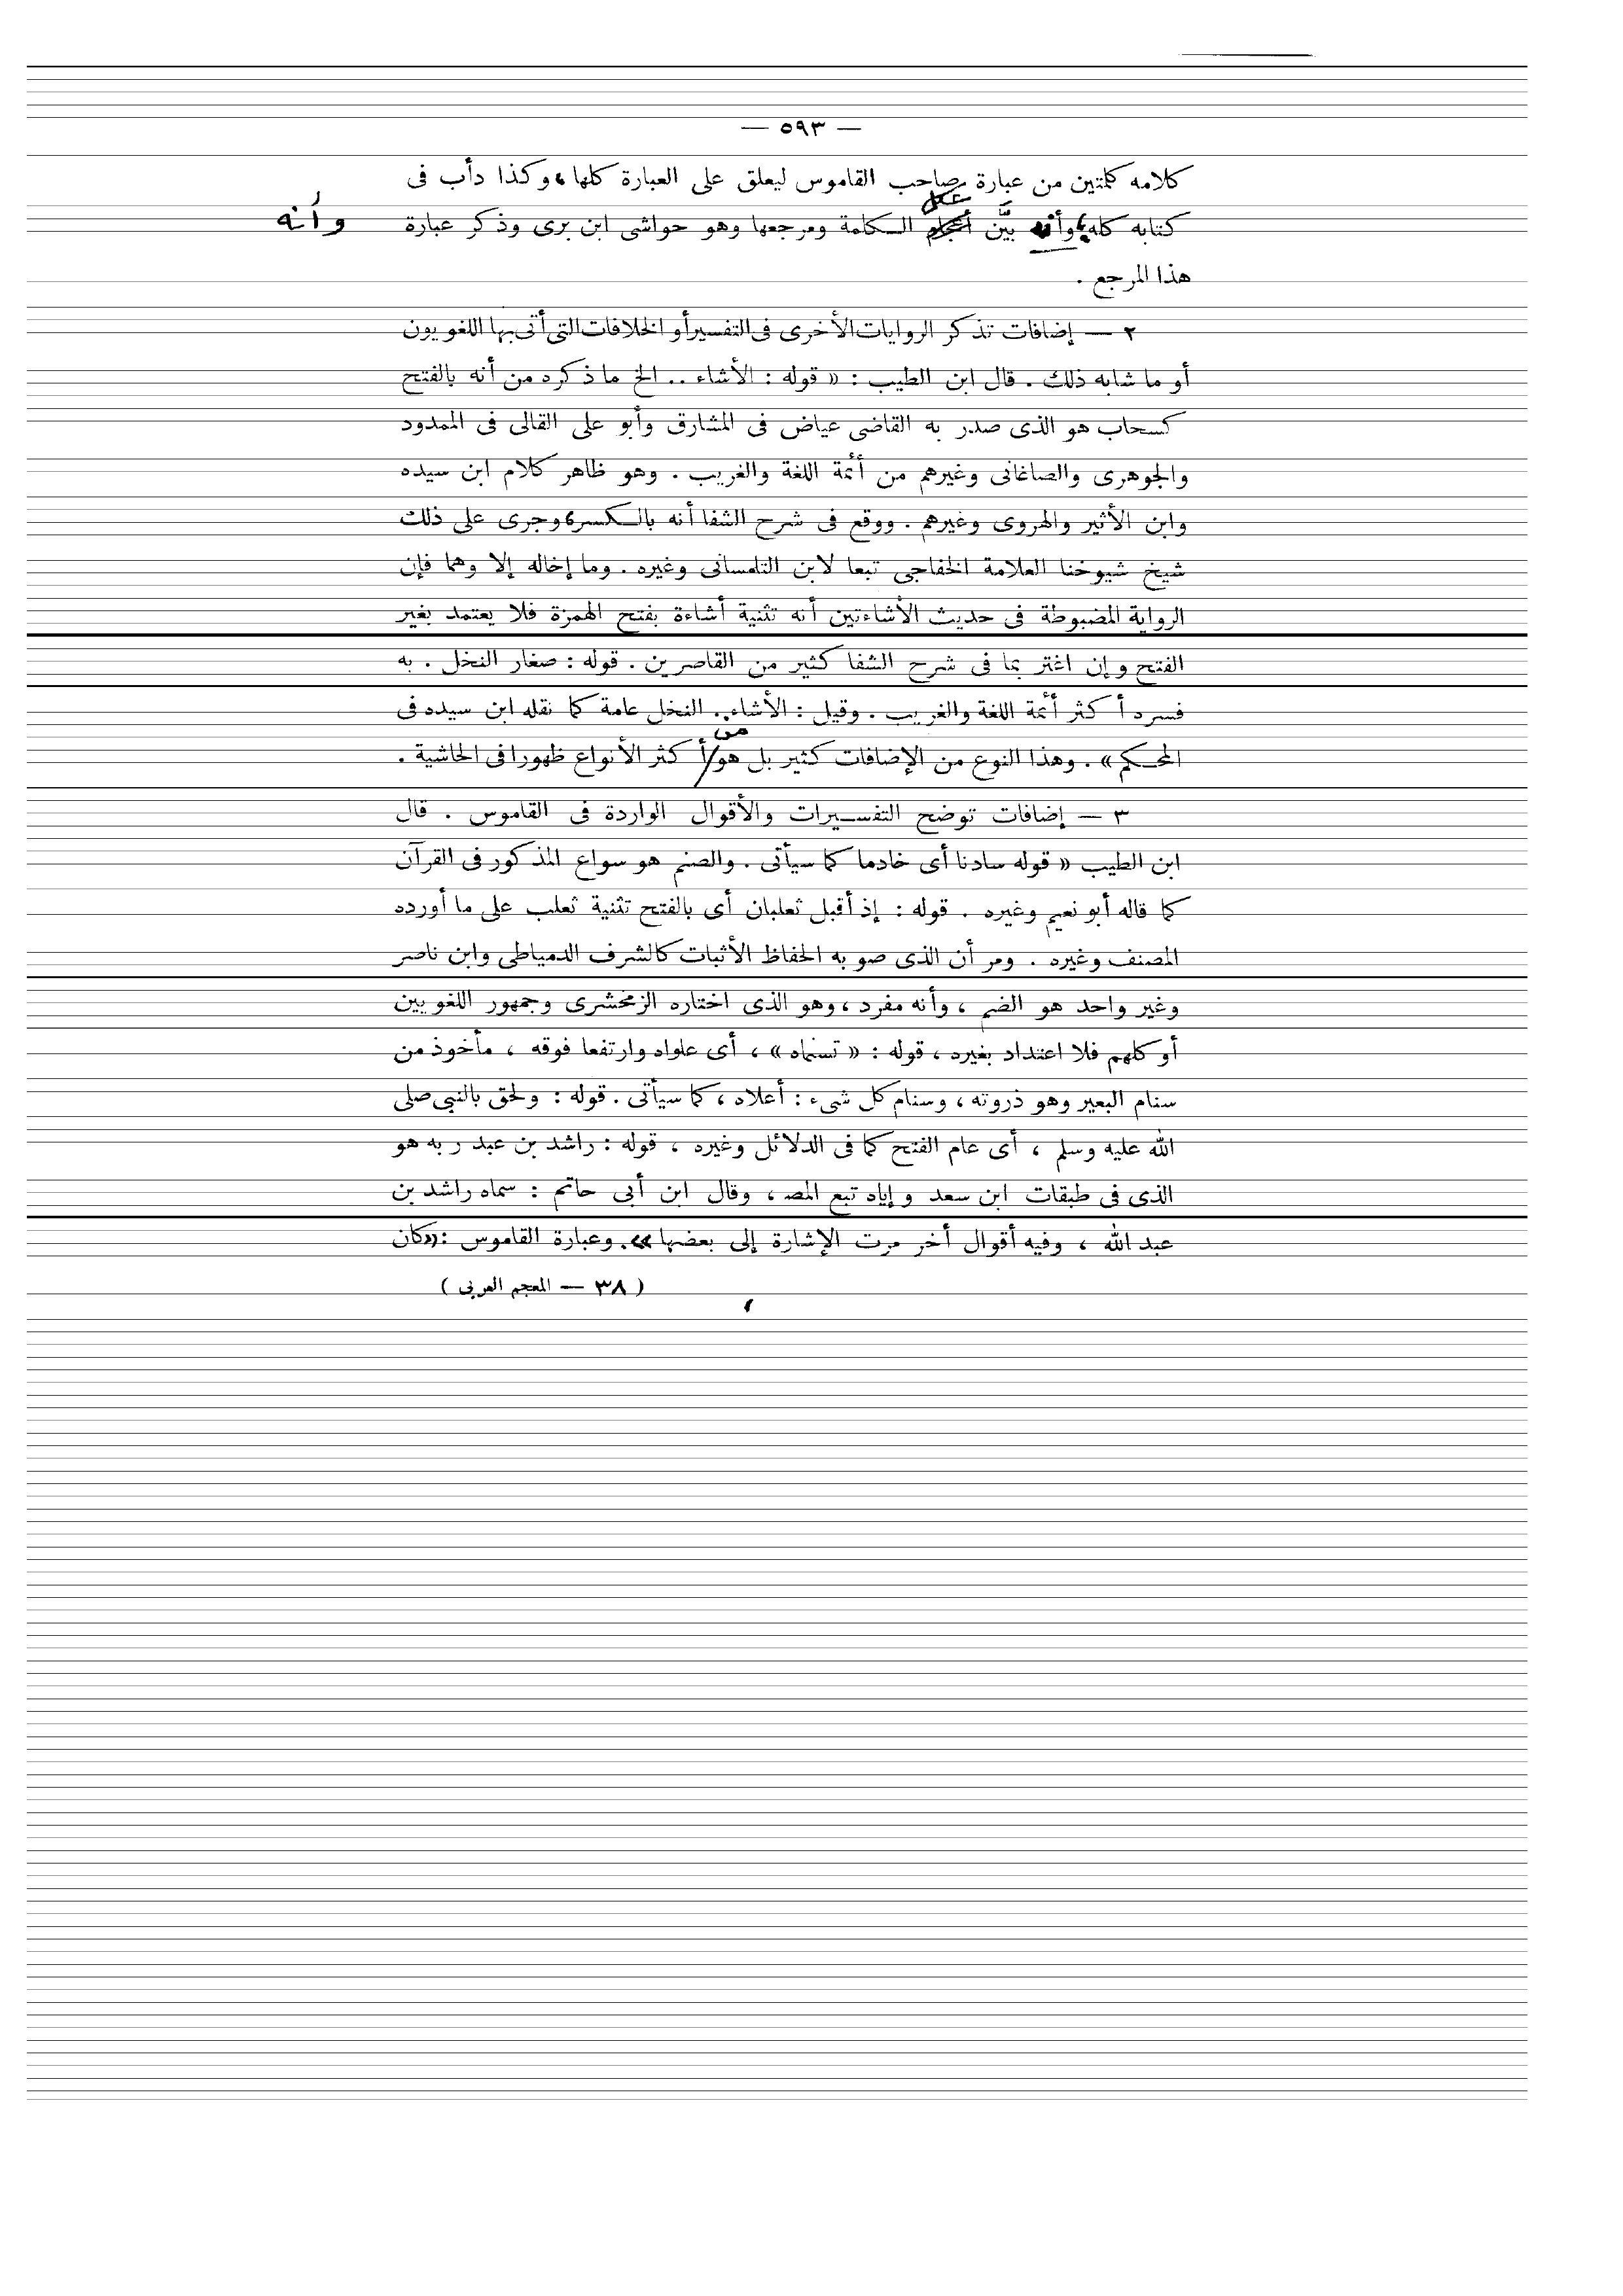 — ٥٩٣ —
كلامه كلمتين من عبارة صاحب القاموس ليعلق على العبارة كلها، وكذا دأب فى
كتابه كله، وأنه بيَّن السكلمة ومرجعها وهو حواشى ابن برى وذكر عبارة
وأنه
هذا المرجع .
٢ — إضافات تذكر الروايات الأخرى فى التفسير أو الخلافات التى أتى بها اللغويون
أو ما شابه ذلك . قال ابن الطيب : « قوله : الأشاء .. الخ ما ذكره من أنه بالفتح
كسحاب هو الذى صدر به القاضى عياض فى المشارق وأبو على القالى فى الممدود
والجوهرى والصاغانى وغيرهم من أئمة اللغة والغريب . وهو ظاهر كلام ابن سيده
وابن الأثير والهروى وغيرهم . ووقع فى شرح الشفا أنه بالكسر، وجرى على ذلك
شيخ شيوخنا العلامة الخفاجى تبعا لابن التلمسانى وغيره . وما إخاله إلا وهما فإن
الرواية المضبوطة فى حديث الأشاءتين أنه تثنية أشاءة بفتح الهمزة فلا يعتمد بغير
الفتح وإن اغتر بما فى شرح الشفا كثير من القاصرين . قوله : صغار النخل . به
فسره أكثر أئمة اللغة والغريب . وقيل : الأشاء .. النخل عامة كما نقله ابن سيده فى
المحكم » . وهذا النوع من الإضافات كثير بل هو من أكثر الأنواع ظهورا فى الحاشية .
٣ — إضافات توضح التفسيرات والأقوال الواردة فى القاموس . قال
ابن الطيب « قوله سادنا أى خادما كما سيأتى . والصنم هو سواع المذكور فى القرآن
كما قاله أبو نعيم وغيره . قوله : إذ أقبل ثعلبان أى بالفتح تثنية ثعلب على ما أورده
المصنف وغيره . ومر أن الذى صوبه الحفاظ الأثبات كالشرف الدمياطى وابن ناصر
وغير واحد هو الضم ، وأنه مفرد ، وهو الذى اختاره الزمخشرى وجمهور اللغويين
أو كلهم فلا اعتداد بغيره ، قوله : « تسنماه » ، أى علواه وارتفعا فوقه ، مأخوذ من
سنام البعير وهو ذروته ، وسنام كل شىء : أعلاه ، كما سيأتى . قوله : ولحق بالنبى صلى
الله عليه وسلم ، أى عام الفتح كما فى الدلائل وغيره ، قوله : راشد بن عبد ربه هو
الذى فى طبقات ابن سعد وإياه تبع المصـ ، وقال ابن أبى حاتم : سماه راشد بن
عبد الله ، وفيه أقوال أخر مرت الإشارة إلى بعضها ». وعبارة القاموس : « كان
( ٣٨ — المعجم العربى )